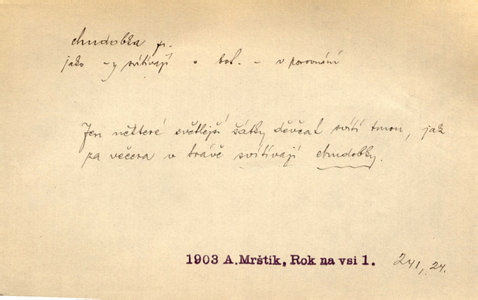 chudobka f.
jako -y svítívají • bot. - v porovnání
Jen některé světlejší šátky děvčat svítí tmou, jak
za večera v trávě svítívají chudobky.
1903 A. Mrštík, Rok na vsi 1. 241, 24.